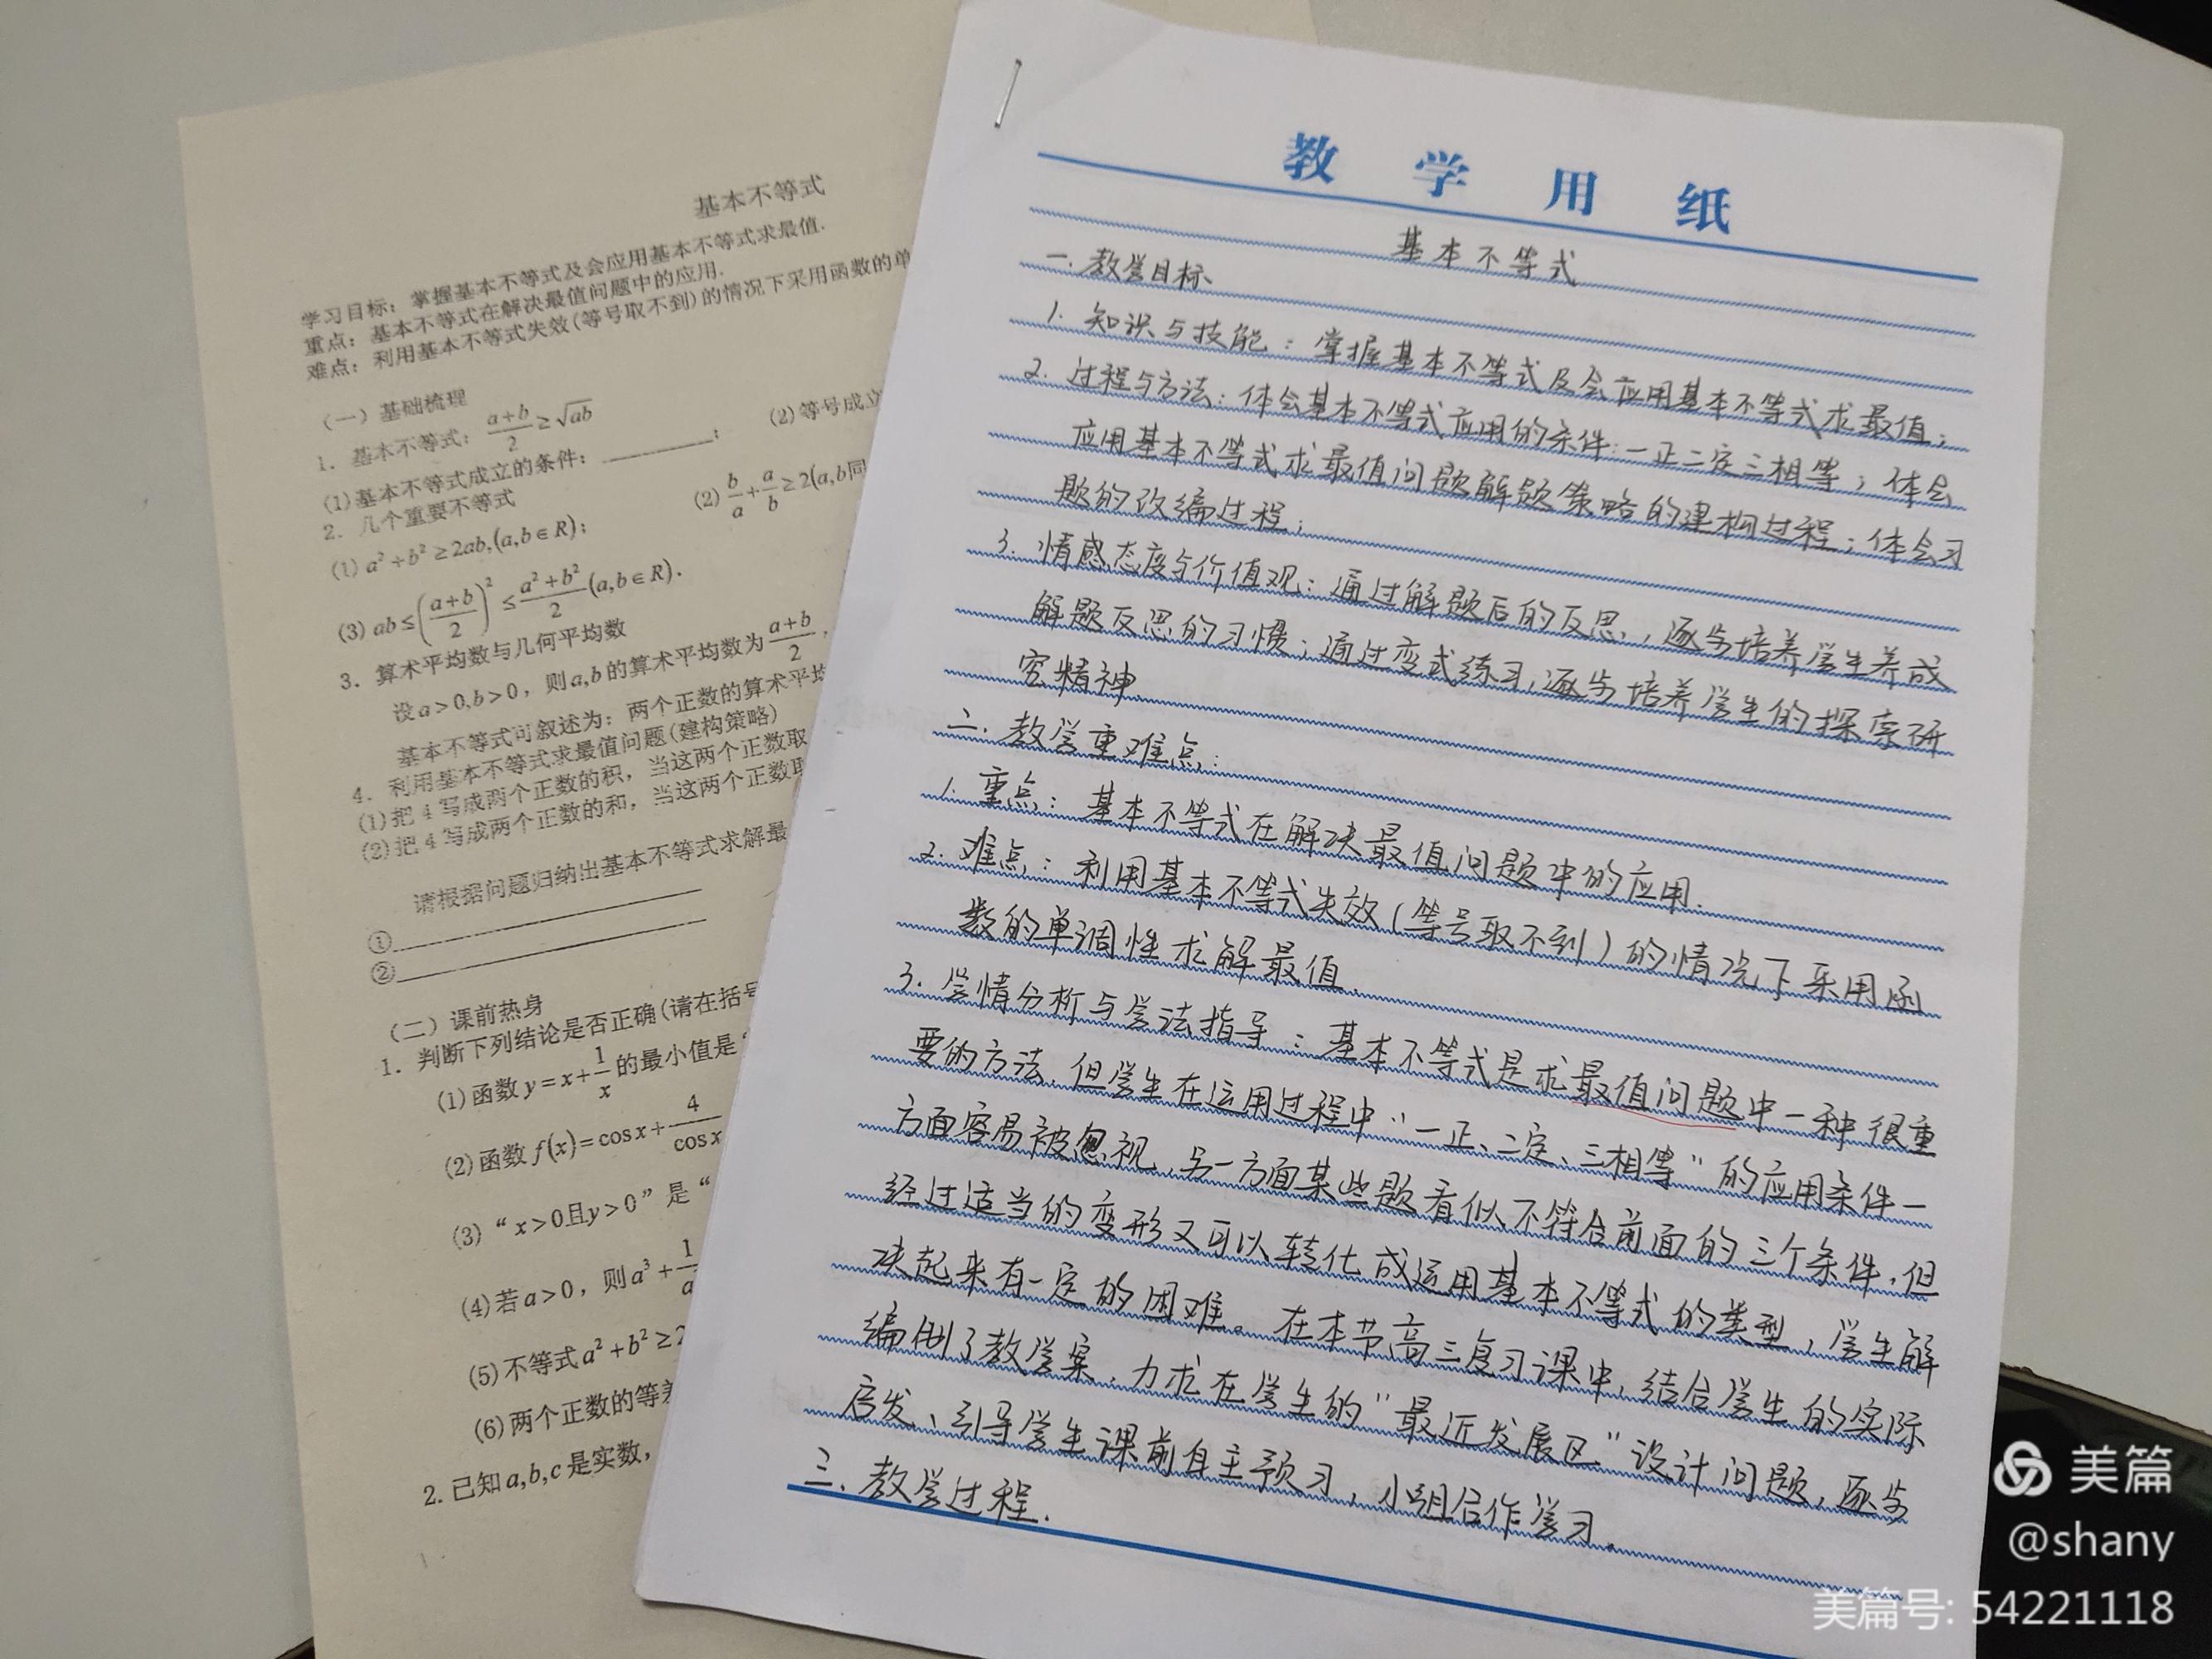 基本不等式
学习目标：掌握基本不等式及会应用基本不等式求最值.
重点：基本不等式在解决最值问题中的应用.
难点：利用基本不等式失效(等号取不到)的情况下采用函数的单
（一）基础梳理
1．基本不等式：(a+b)/2≥√ab
(1)基本不等式成立的条件：________； (2)等号成立
2．几个重要不等式
(1) a²+b²≥2ab,(a,b∈R)； (2) b/a+a/b≥2(a,b同
(3) ab≤((a+b)/2)²≤(a²+b²)/2(a,b∈R).
3．算术平均数与几何平均数
设a>0,b>0，则a,b的算术平均数为(a+b)/2，
基本不等式可叙述为：两个正数的算术平均
4．利用基本不等式求最值问题(建构策略)
(1)把4写成两个正数的积，当这两个正数取
(2)把4写成两个正数的和，当这两个正数取
请根据问题归纳出基本不等式求解最
①________
②________
（二）课前热身
1．判断下列结论是否正确(请在括号
(1)函数y=x+1/x的最小值是
(2)函数f(x)=cosx+4/cosx
(3)“x>0且y>0”是“
(4)若a>0，则a³+1/a
(5)不等式a²+b²≥2
(6)两个正数的等差
2.已知a,b,c是实数，
教学用纸
基本不等式
一.教学目标
1.知识与技能：掌握基本不等式及会应用基本不等式求最值；
2.过程与方法：体会基本不等式应用的条件：一正二定三相等；体会
应用基本不等式求最值问题解题策略的建构过程；体会习
题的改编过程；
3.情感态度与价值观：通过解题后的反思，逐步培养学生养成
解题反思的习惯；通过变式练习，逐步培养学生的探索研
究精神.
二.教学重难点：
1.重点：基本不等式在解决最值问题中的应用.
2.难点：利用基本不等式失效(等号取不到)的情况下采用函
数的单调性求解最值.
3.学情分析与学法指导：基本不等式是求最值问题中一种很重
要的方法，但学生在运用过程中“一正、二定、三相等”的应用条件一
方面容易被忽视，另一方面某些题看似不符合前面的三个条件，但
经过适当的变形又可以转化成运用基本不等式的类型，学生解
决起来有一定的困难。在本节高三复习课中，结合学生的实际
编制了教学案，力求在学生的“最近发展区”设计问题，逐步
启发、引导学生课前自主预习，小组合作学习.
三.教学过程.
美篇
@shany
美篇号: 54221118